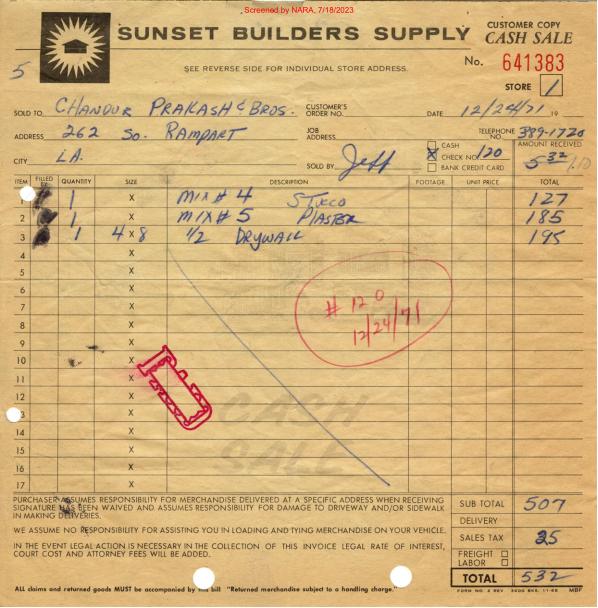 Screened by NARA, 7/18/2023
SUNSET BUILDERS SUPPLY
CUSTOMER COPY
CASH SALE
No. 641383
5
SEE REVERSE SIDE FOR INDIVIDUAL STORE ADDRESS.
STORE 1
SOLD TO CHANDUR PRAKASH & BROS. CUSTOMER'S ORDER NO. DATE 12/24/71 19
ADDRESS 262 SO. RAMPART JOB ADDRESS TELEPHONE NO. 389-1720
CITY L.A. SOLD BY Jeff
CASH
X CHECK NO. 120
BANK CREDIT CARD
AMOUNT RECEIVED
5 32
ITEM FILLED BY QUANTITY SIZE DESCRIPTION FOOTAGE UNIT PRICE TOTAL
1 1 X MIX # 4 STUCCO 127
2 1 X MIX # 5 PLASTER 185
3 1 4 X 8 1/2 DRYWALL 195
4 X
5 X
6 X
7 X
8 X
9 X
10 X
11 X
12 X
13 X
14 X
15 X
16 X
17 X
# 120
12/24/71
CASH
SALE
PURCHASER ASSUMES RESPONSIBILITY FOR MERCHANDISE DELIVERED AT A SPECIFIC ADDRESS WHEN RECEIVING
SIGNATURE HAS BEEN WAIVED AND ASSUMES RESPONSIBILITY FOR DAMAGE TO DRIVEWAY AND/OR SIDEWALK
IN MAKING DELIVERIES.
WE ASSUME NO RESPONSIBILITY FOR ASSISTING YOU IN LOADING AND TYING MERCHANDISE ON YOUR VEHICLE.
IN THE EVENT LEGAL ACTION IS NECESSARY IN THE COLLECTION OF THIS INVOICE LEGAL RATE OF INTEREST,
COURT COST AND ATTORNEY FEES WILL BE ADDED.
SUB TOTAL 507
DELIVERY
SALES TAX 25
FREIGHT
LABOR
TOTAL 532
ALL claims and returned goods MUST be accompanied by this bill "Returned merchandise subject to a handling charge."
FORM NO. 2 REV 11-68 MBF